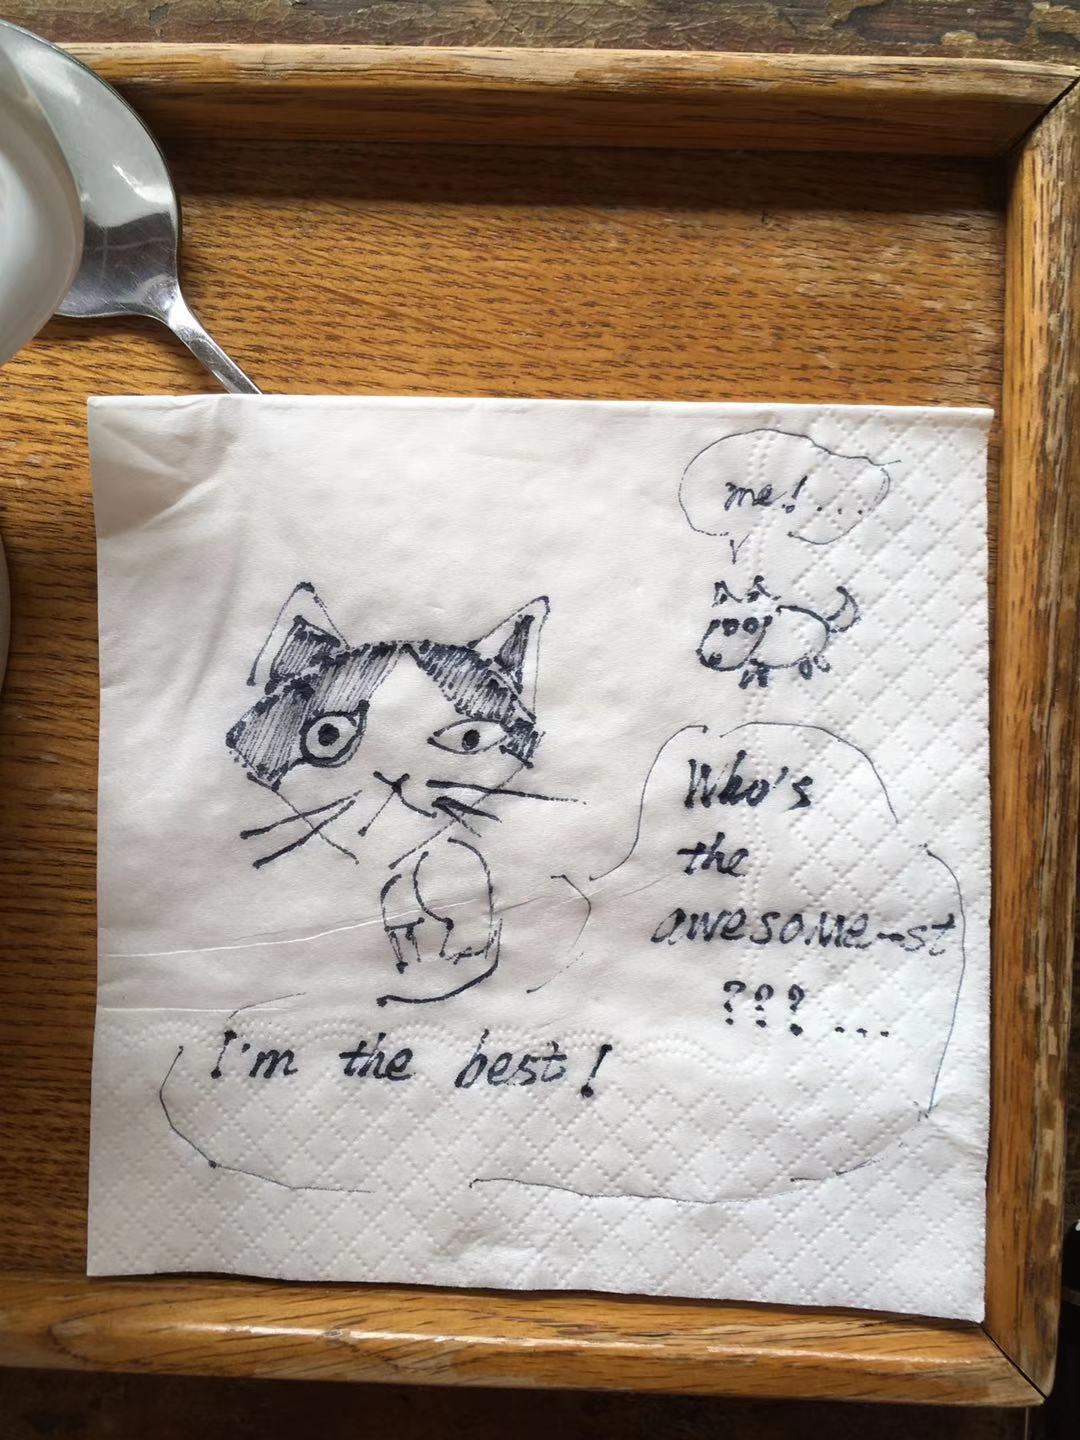 me!...
Who's
the
awesome-st
???...
I'm the best!